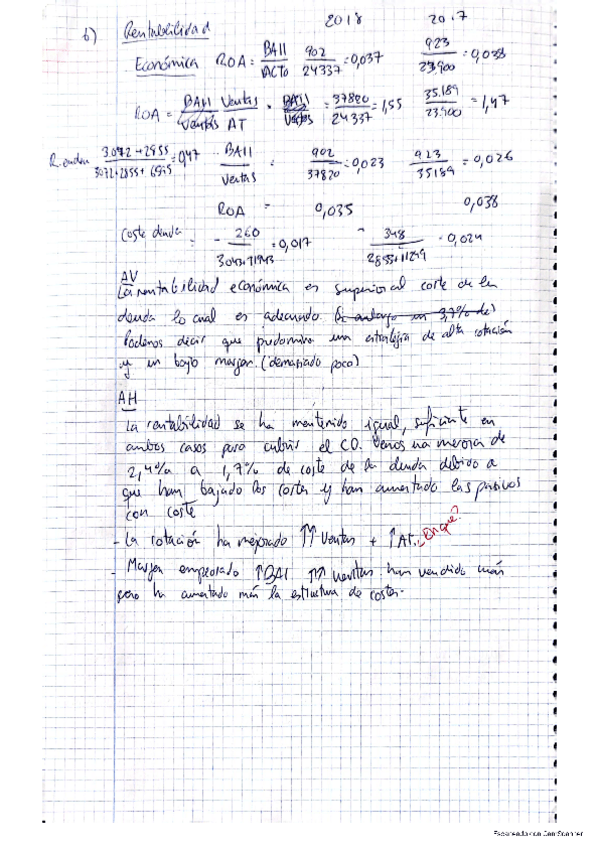 b) Rentabilidad 2018 2017
Económica ROA = BAII/ACTO 902/24337 = 0,037 923/23.900 = 0,038
ROA = BAII/Ventas Ventas/AT = 37820/24337 = 1,55 35.189/23.900 = 1,47
R. endeu 3.072+2855/ = 0,47 BAII/Ventas = 902/37820 = 0,023 923/35189 = 0,026
ROA = 0,035 0,038
Coste deuda = 260/ = 0,017 348/ = 0,024
AV
La rentabilidad económica es superior al coste de la
deuda lo cual es adecuado.
Podemos decir que predomina una estrategia de alta rotación
y un bajo margen. (demasiado poco)
AH
La rentabilidad se ha mantenido igual, suficiente en
ambos casos para cubrir el CD. Vemos una mejora de
2,4% a 1,7% de coste de la deuda debido a
que han bajado los costes y han aumentado los pasivos
con coste
- La rotación ha mejorado ↑↑ Ventas + ↑AT. ¿En qué?
- Margen empeorado ↑BAI ↑↑ ventas han vendido más
pero ha aumentado más la estructura de costes.